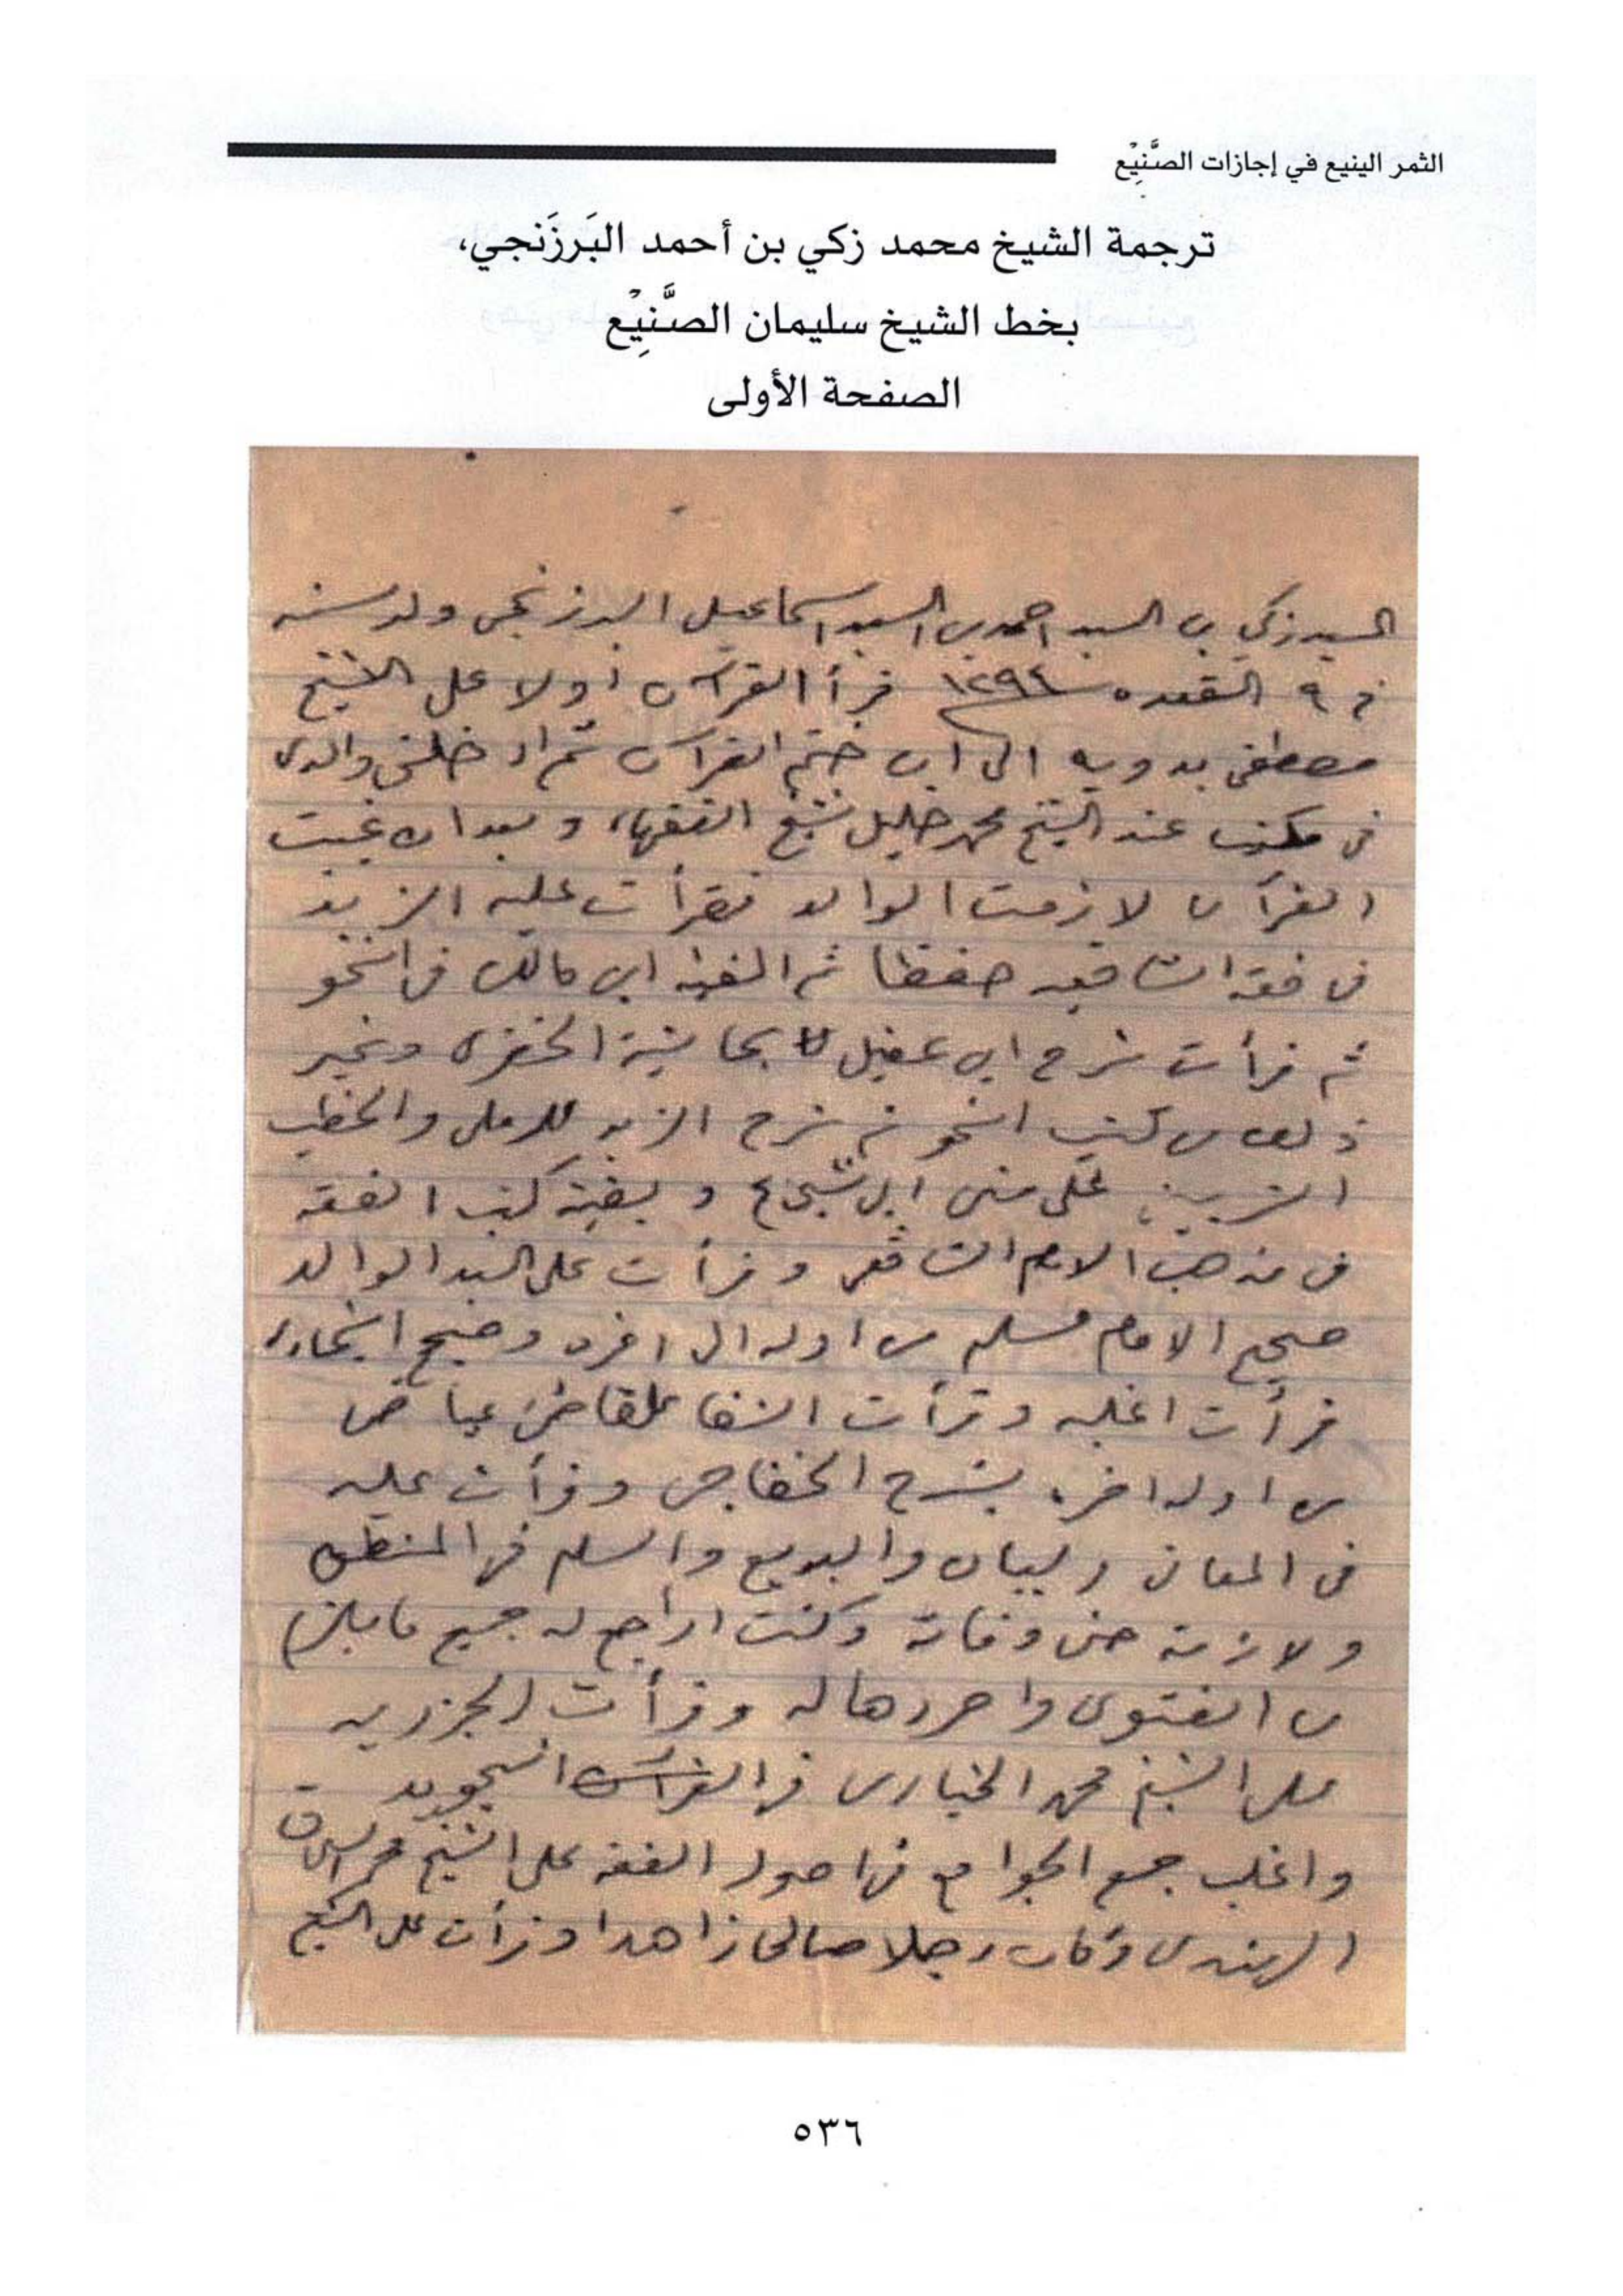 الثمر الينيع في إجازات الصَّنِيْع
ترجمة الشيخ محمد زكي بن أحمد البَرزَنجي،
بخط الشيخ سليمان الصَّنِيْع
الصفحة الأولى
السيد زكي بن السيد احمد بن السيد اسماعيل البرزنجي ولد سنه
في ٩ القعده سنة ١٢٩٤ قرأ القرآن اولا على الشيخ
مصطفى بدويه الى ان ختم القرآن ثم ادخلني والدى
في مكتب عند الشيخ محمد خليل شيخ الفقهاء وبعد ان غبت
القرآن لازمت الوالد فقرأت عليه الزبد
في فقه الشافعيه حفظا ثم الفية ابن مالك في النحو
ثم قرأت شرح ابن عقيل بحاشية الخضرى وغير
ذلك من كتب النحو ثم شرح الزبد للرملى والخطيب
الشربينى على متن ابى شجاع وبقية كتب الفقه
في مذهب الامام الشافعى وقرأت على السيد الوالد
صحيح الامام مسلم من اوله الى اخره وصحيح البخارى
قرأت اغلبه وقرأت الشفا للقاضى عياض
من اوله اخره بشرح الخفاجى وقرأت عليه
في المعانى والبيان والبديع والسلم في المنطق
ولازمته حتى وفاته وكنت اراجع له جميع ما يلزم
من الفتوى واحررها له وقرأت الجزريه
على الشيخ محمد الخيارى في القرآن التجويد
واغلب جمع الجوامع في اصول الفقه على الشيخ محمد
الهندى وكان رجلا صالحا زاهدا وقرأت على الشيخ
٥٣٦